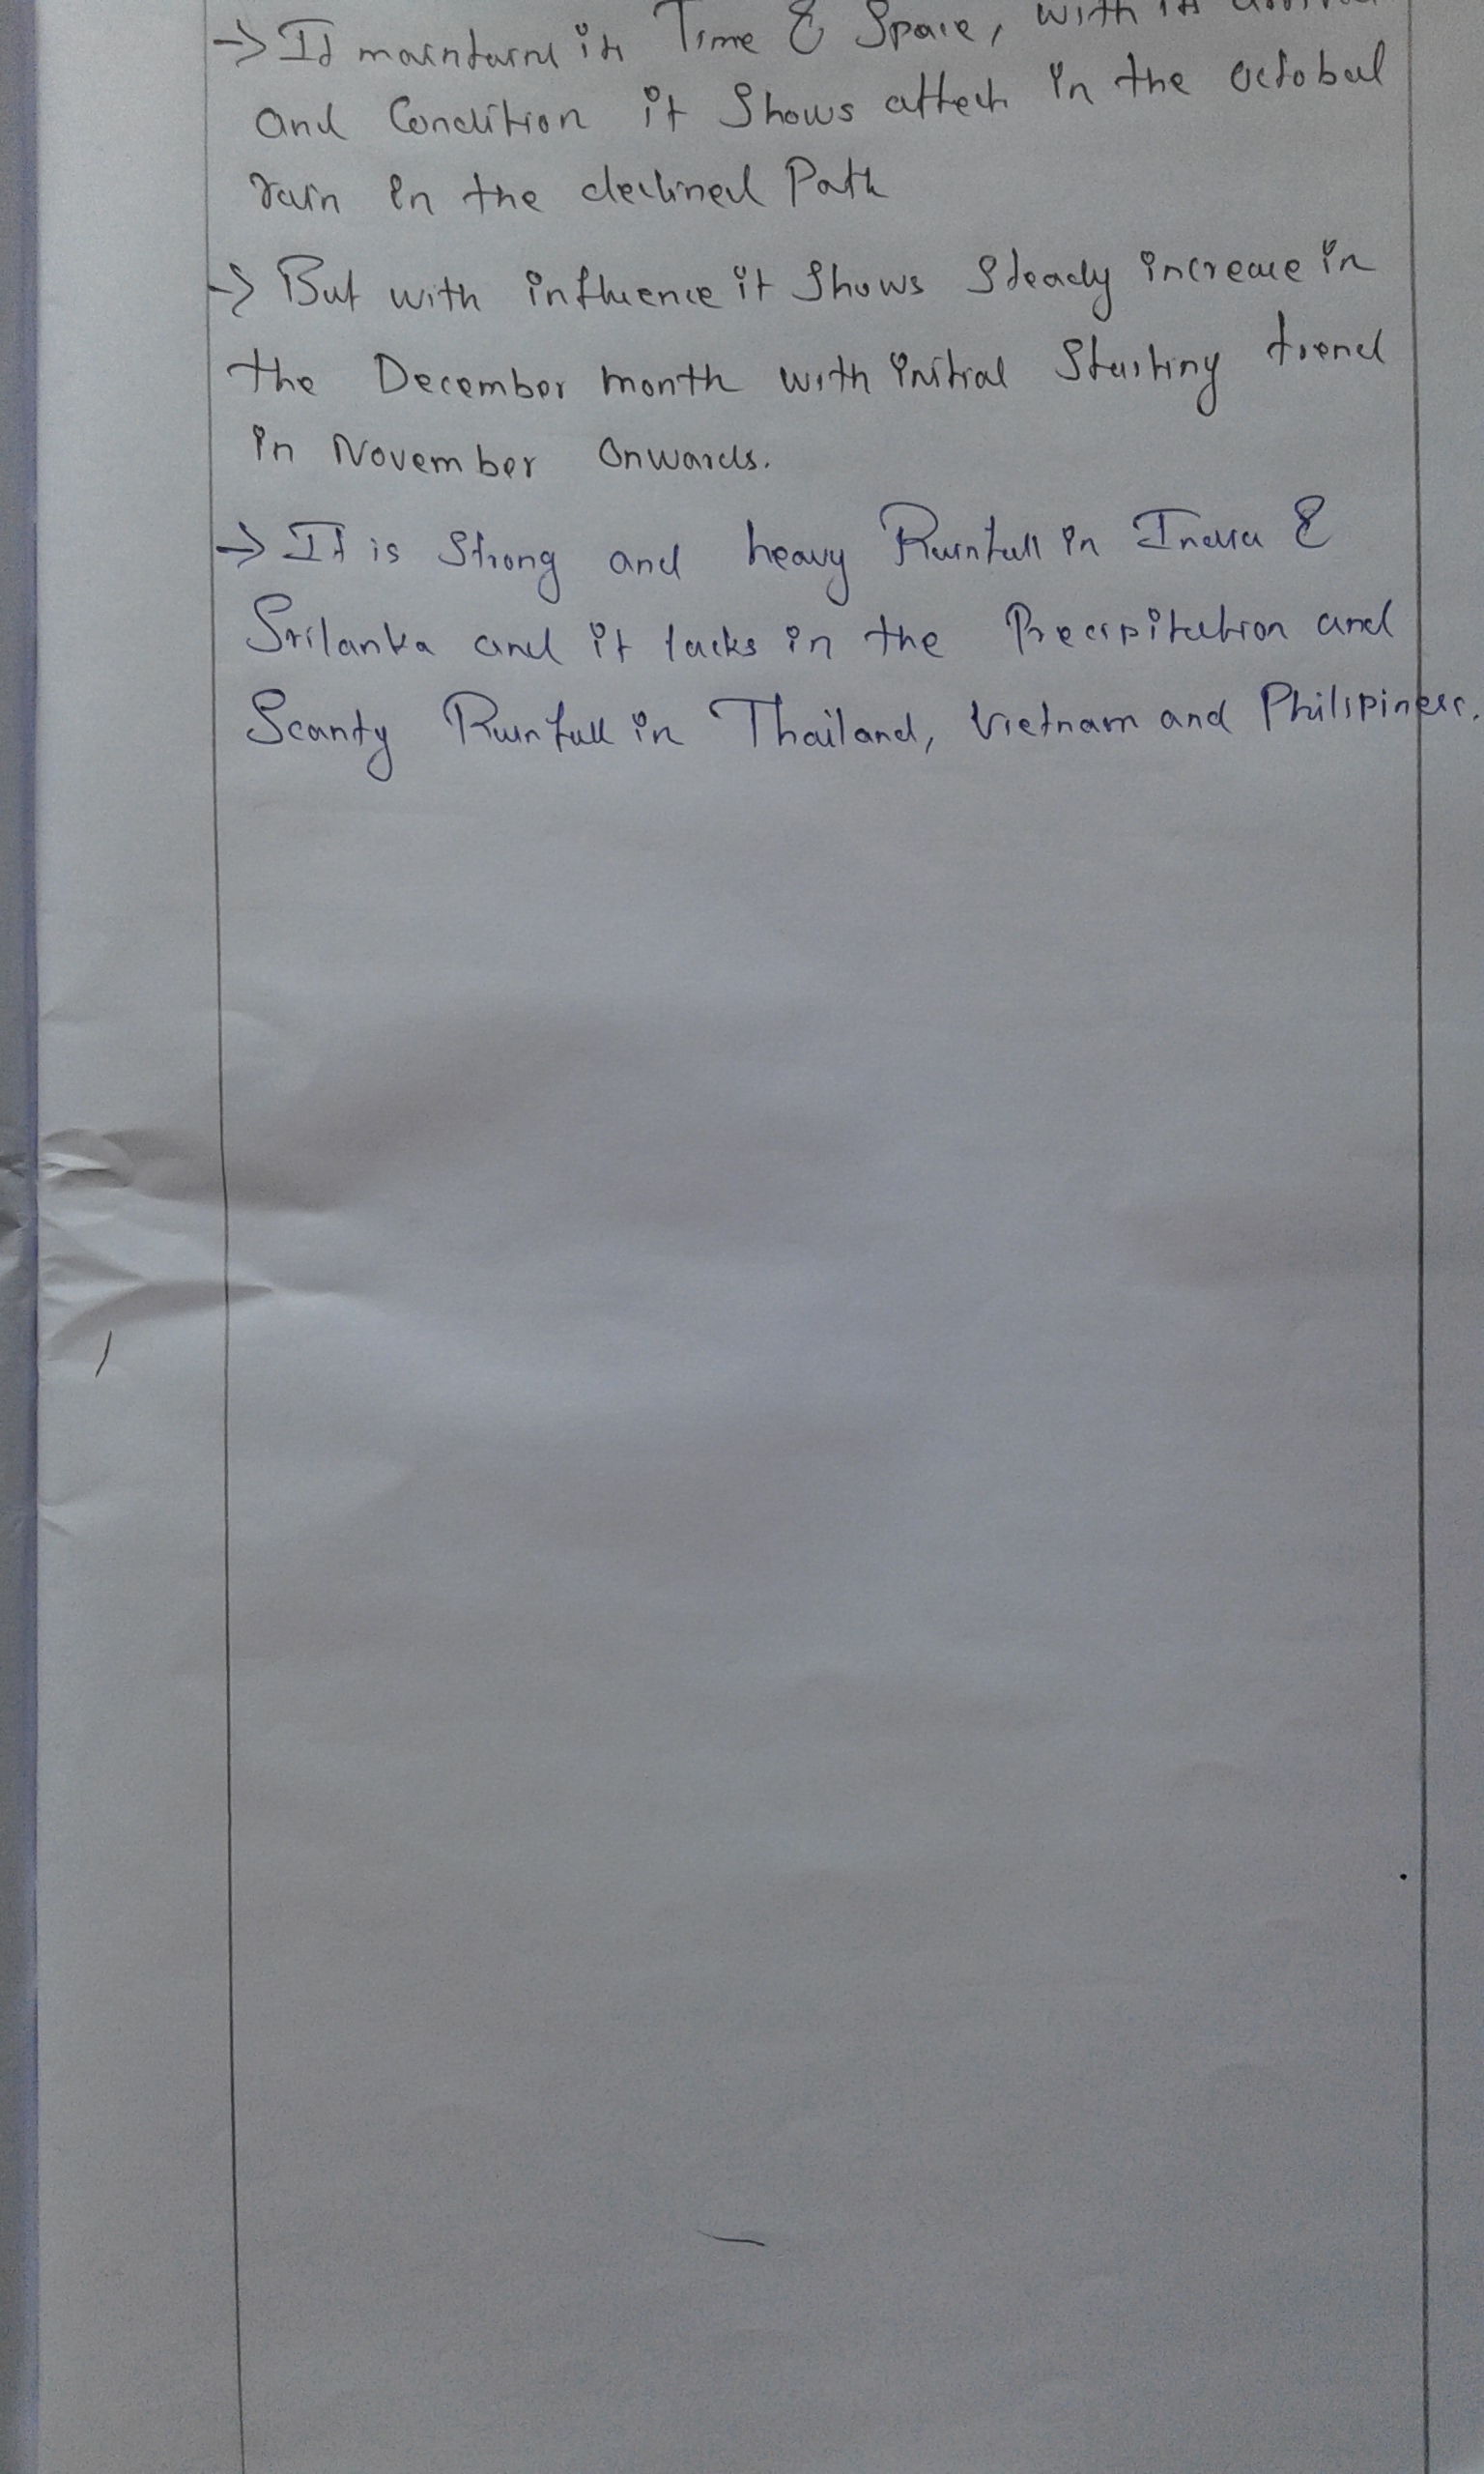 → It maintains its Time & Space, with its
and Condition it Shows affects in the October
rain in the declined Path
→ But with influence it Shows Steady increase in
the December month with initial Starting trend
in November Onwards.
→ It is Strong and heavy Rainfall in India &
Srilanka and it lacks in the Precipitation and
Scanty Rainfall in Thailand, Vietnam and Philipiness.